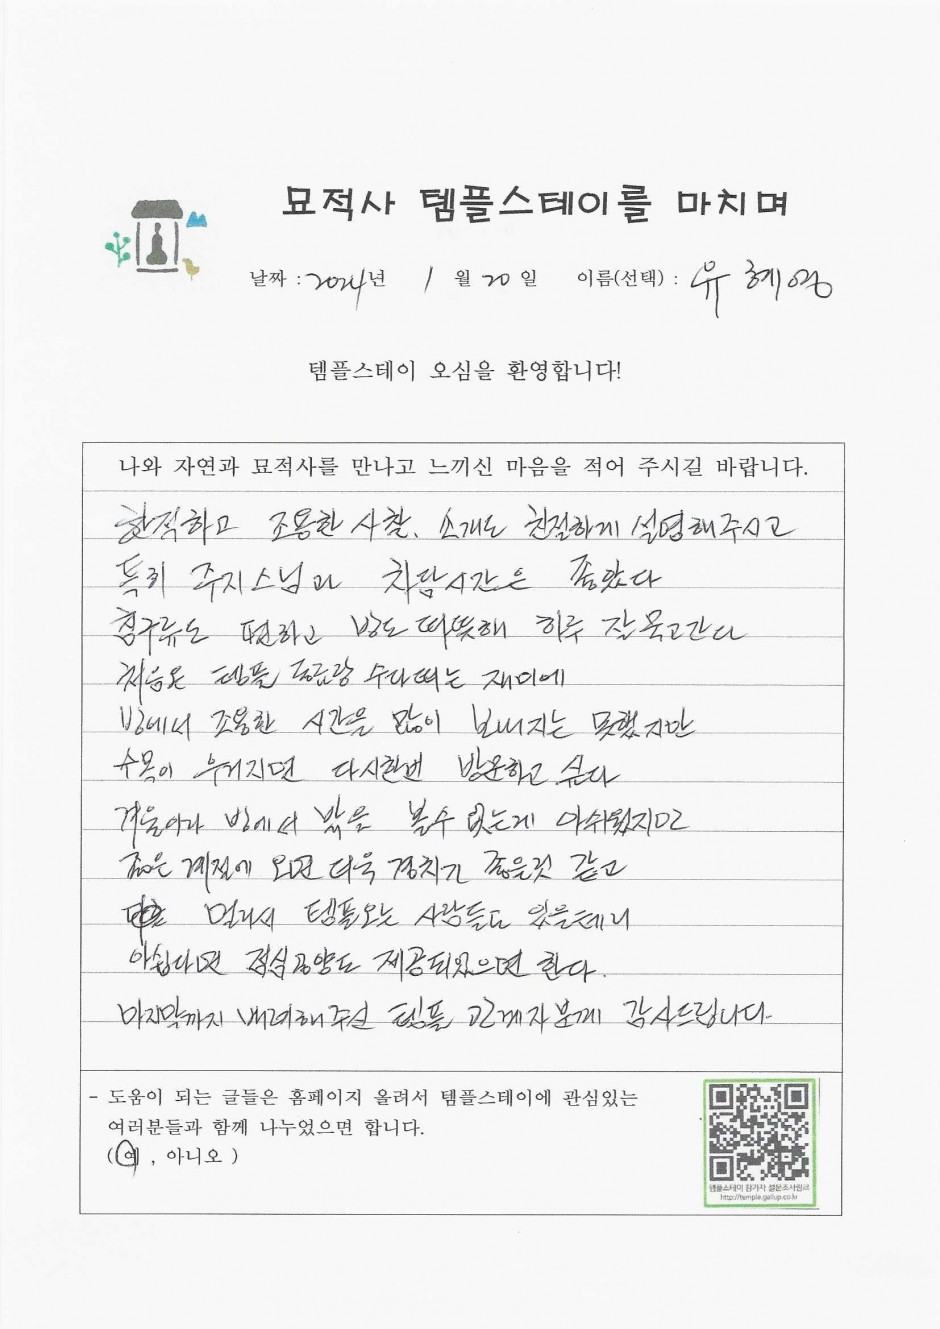 묘적사 템플스테이를 마치며
날짜 : 2024년 1월 20일 이름(선택) : 유혜영
템플스테이 오심을 환영합니다!
나와 자연과 묘적사를 만나고 느끼신 마음을 적어 주시길 바랍니다.
한적하고 조용한 사찰. 소개도 친절하게 설명해주시고
특히 주지스님과 차담시간은 좋았다
침구류도 편하고 방도 따뜻해 하루 잘 묵고간다
처음온 템플 동료랑 수다떠는 재미에
방에서 조용한 시간을 많이 보내지는 못했지만
수목이 우거지면 다시한번 방문하고 싶다
겨울이라 방에서 밖을 볼수 없는게 아쉬웠지만
좋은 계절에 오면 더욱 경치가 좋을것 같고
멀리서 템플오는 사람들도 있을테니
아쉽다면 점심공양도 제공되었으면 한다.
마지막까지 배려해주신 템플 관계자분께 감사드립니다-
- 도움이 되는 글들은 홈페이지 올려서 템플스테이에 관심있는
여러분들과 함께 나누었으면 합니다.
(예 , 아니오 )
템플스테이 참가자 설문조사링크
http://temple.gallup.co.kr